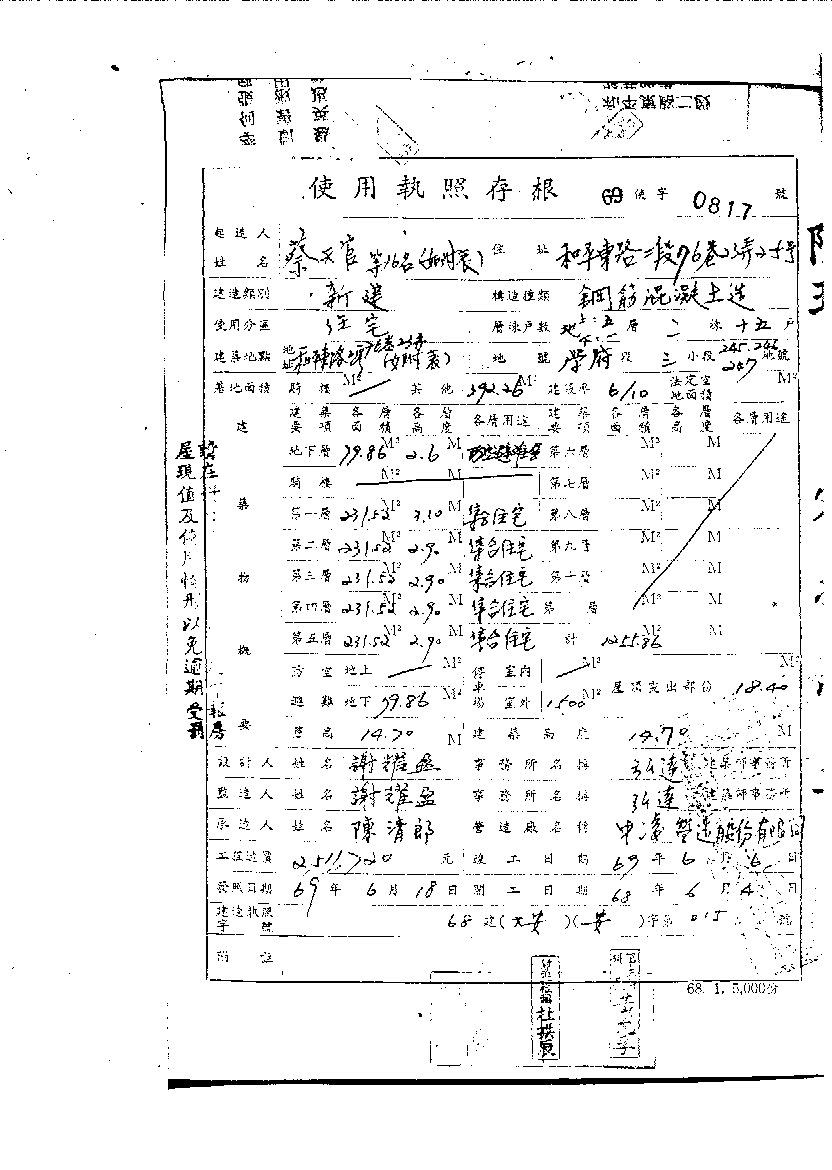 使用執照存根 69 使字 0817 號
起造人姓名 蔡天官等16名(如附表) 住址 和平東路二段76巷23弄25號
建造類別 新建 構造種類 鋼筋混凝土造
使用分區 住宅 層棟戶數 地上:五 層 二 棟 十五 戶
建築地點 (如附表) 地號 學府 段 三 小段 245.246 247 地號
基地面積 騎樓 M² 其他 392.26 M² 建蔽率 6/10 法定空地面積 M²
建築要項 各層面積 各層高度 各層用途 建築要項 各層面積 各層高度 各層用途
建築物概要
地下層 79.86 M² 2.6 M 防空避難室 第六層 M² M
騎樓 M² M 第七層 M² M
第一層 231.52 M² 3.10 M 集合住宅 第八層 M² M
第二層 231.52 M² 2.90 M 集合住宅 第九層 M² M
第三層 231.52 M² 2.90 M 集合住宅 第十層 M² M
第四層 231.52 M² 2.90 M 集合住宅 第 層 M² M
第五層 231.52 M² 2.90 M 集合住宅 計 1255.86 M² M
防空避難 地上 M² 停車場 室內 M² 屋頂突出部份 18.40 M²
地下 79.86 M² 室外 1500 M²
簷高 14.70 M 建築高度 14.70 M
設計人 姓名 謝耀盈 事務所名稱 弘達建築師事務所
監造人 姓名 謝耀盈 事務所名稱 弘達建築師事務所
承造人 姓名 陳清郎 營造廠名稱 營造股份有限公司
工程造價 2511720 元 竣工日期 69 年 6 月 6 日
發照日期 69 年 6 月 18 日 開工日期 68 年 6 月 4 日
建造執照字號 68 建(大安)(一安)字第 015 號
附註
68. 1. 5,000份
屋現值及使用情形以免逾期受罰